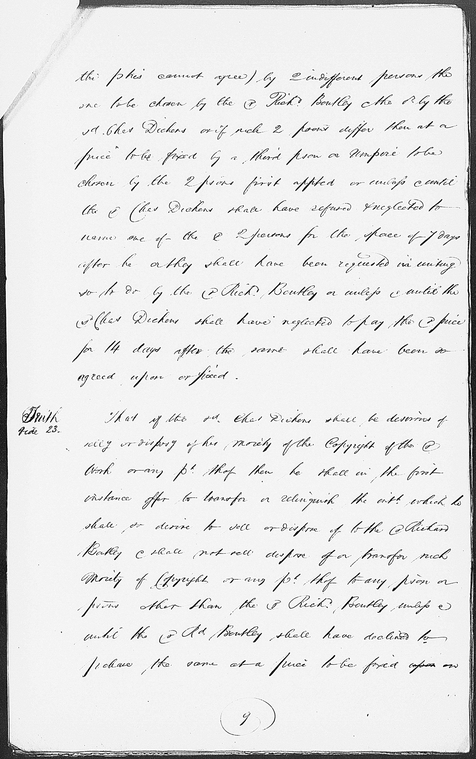 the pties cannot agree) by 2 indifferent persons the
one to be chosen by the sd Richd Bentley & the or by the
sd Chas Dickens or if such 2 psons differ then at a
price to be fixed by a third pson or Umpire to be
chosen by the 2 psons first appted or unless & until
the sd Chas Dickens shall have refused & neglected to
name one of the sd 2 persons for the space of 7 days
after he or they shall have been requested in writing
so to do by the sd Richd Bentley or unless & until the
sd Chas Dickens shall have neglected to pay the sd price
for 14 days after the same shall have been so
agreed upon or fixed.
That if the sd Chas Dickens shall be desirous of
sellg or disposg of his moiety of the Copyright of the sd
Work or any pt thof then he shall in the first
instance offer to transfer or relinquish the intt which he
shall so desire to sell or dispose of to the sd Richard
Bentley & shall not sell dispose of or transfer such
moiety of Copyright or any pt thof to any pson or
psons other than the sd Richd Bentley unless &
until the sd Rd Bentley shall have declined to
pchase the same at a price to be fixed upon or
9